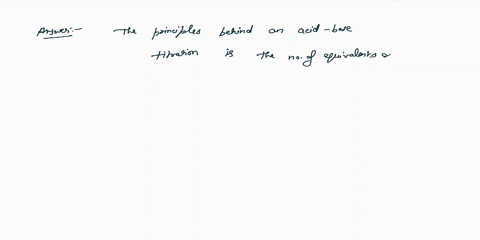 Answer:- The principles behind an acid-base
titration is the no. of equivalents o